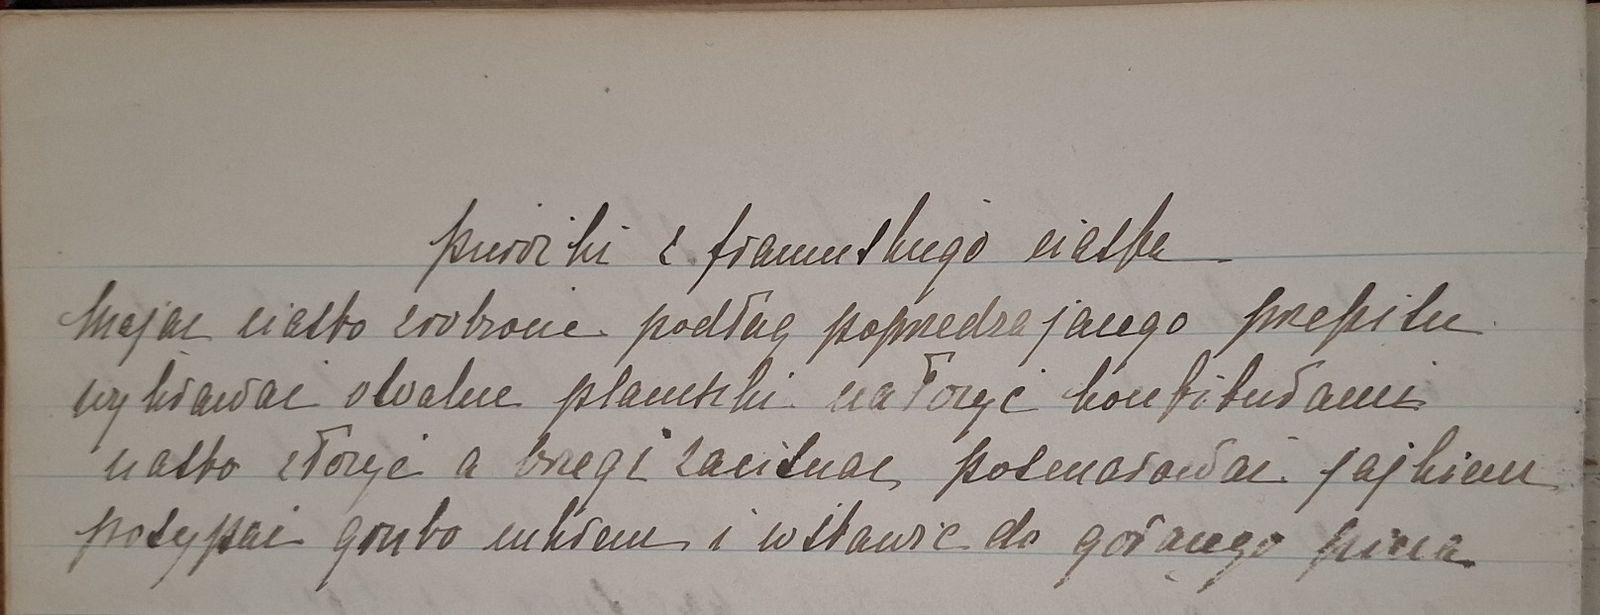 pierożki z francuskiego ciasta
Mając ciasto zrobione podług poprzedzajancego przepisu
wykrawać owalne placuszki nałożyć konfiturami
ciasto złożyć a brzegi zacisnąć, posmarować jajkiem
posypać grubo cukrem i wstawić do gorancego pieca